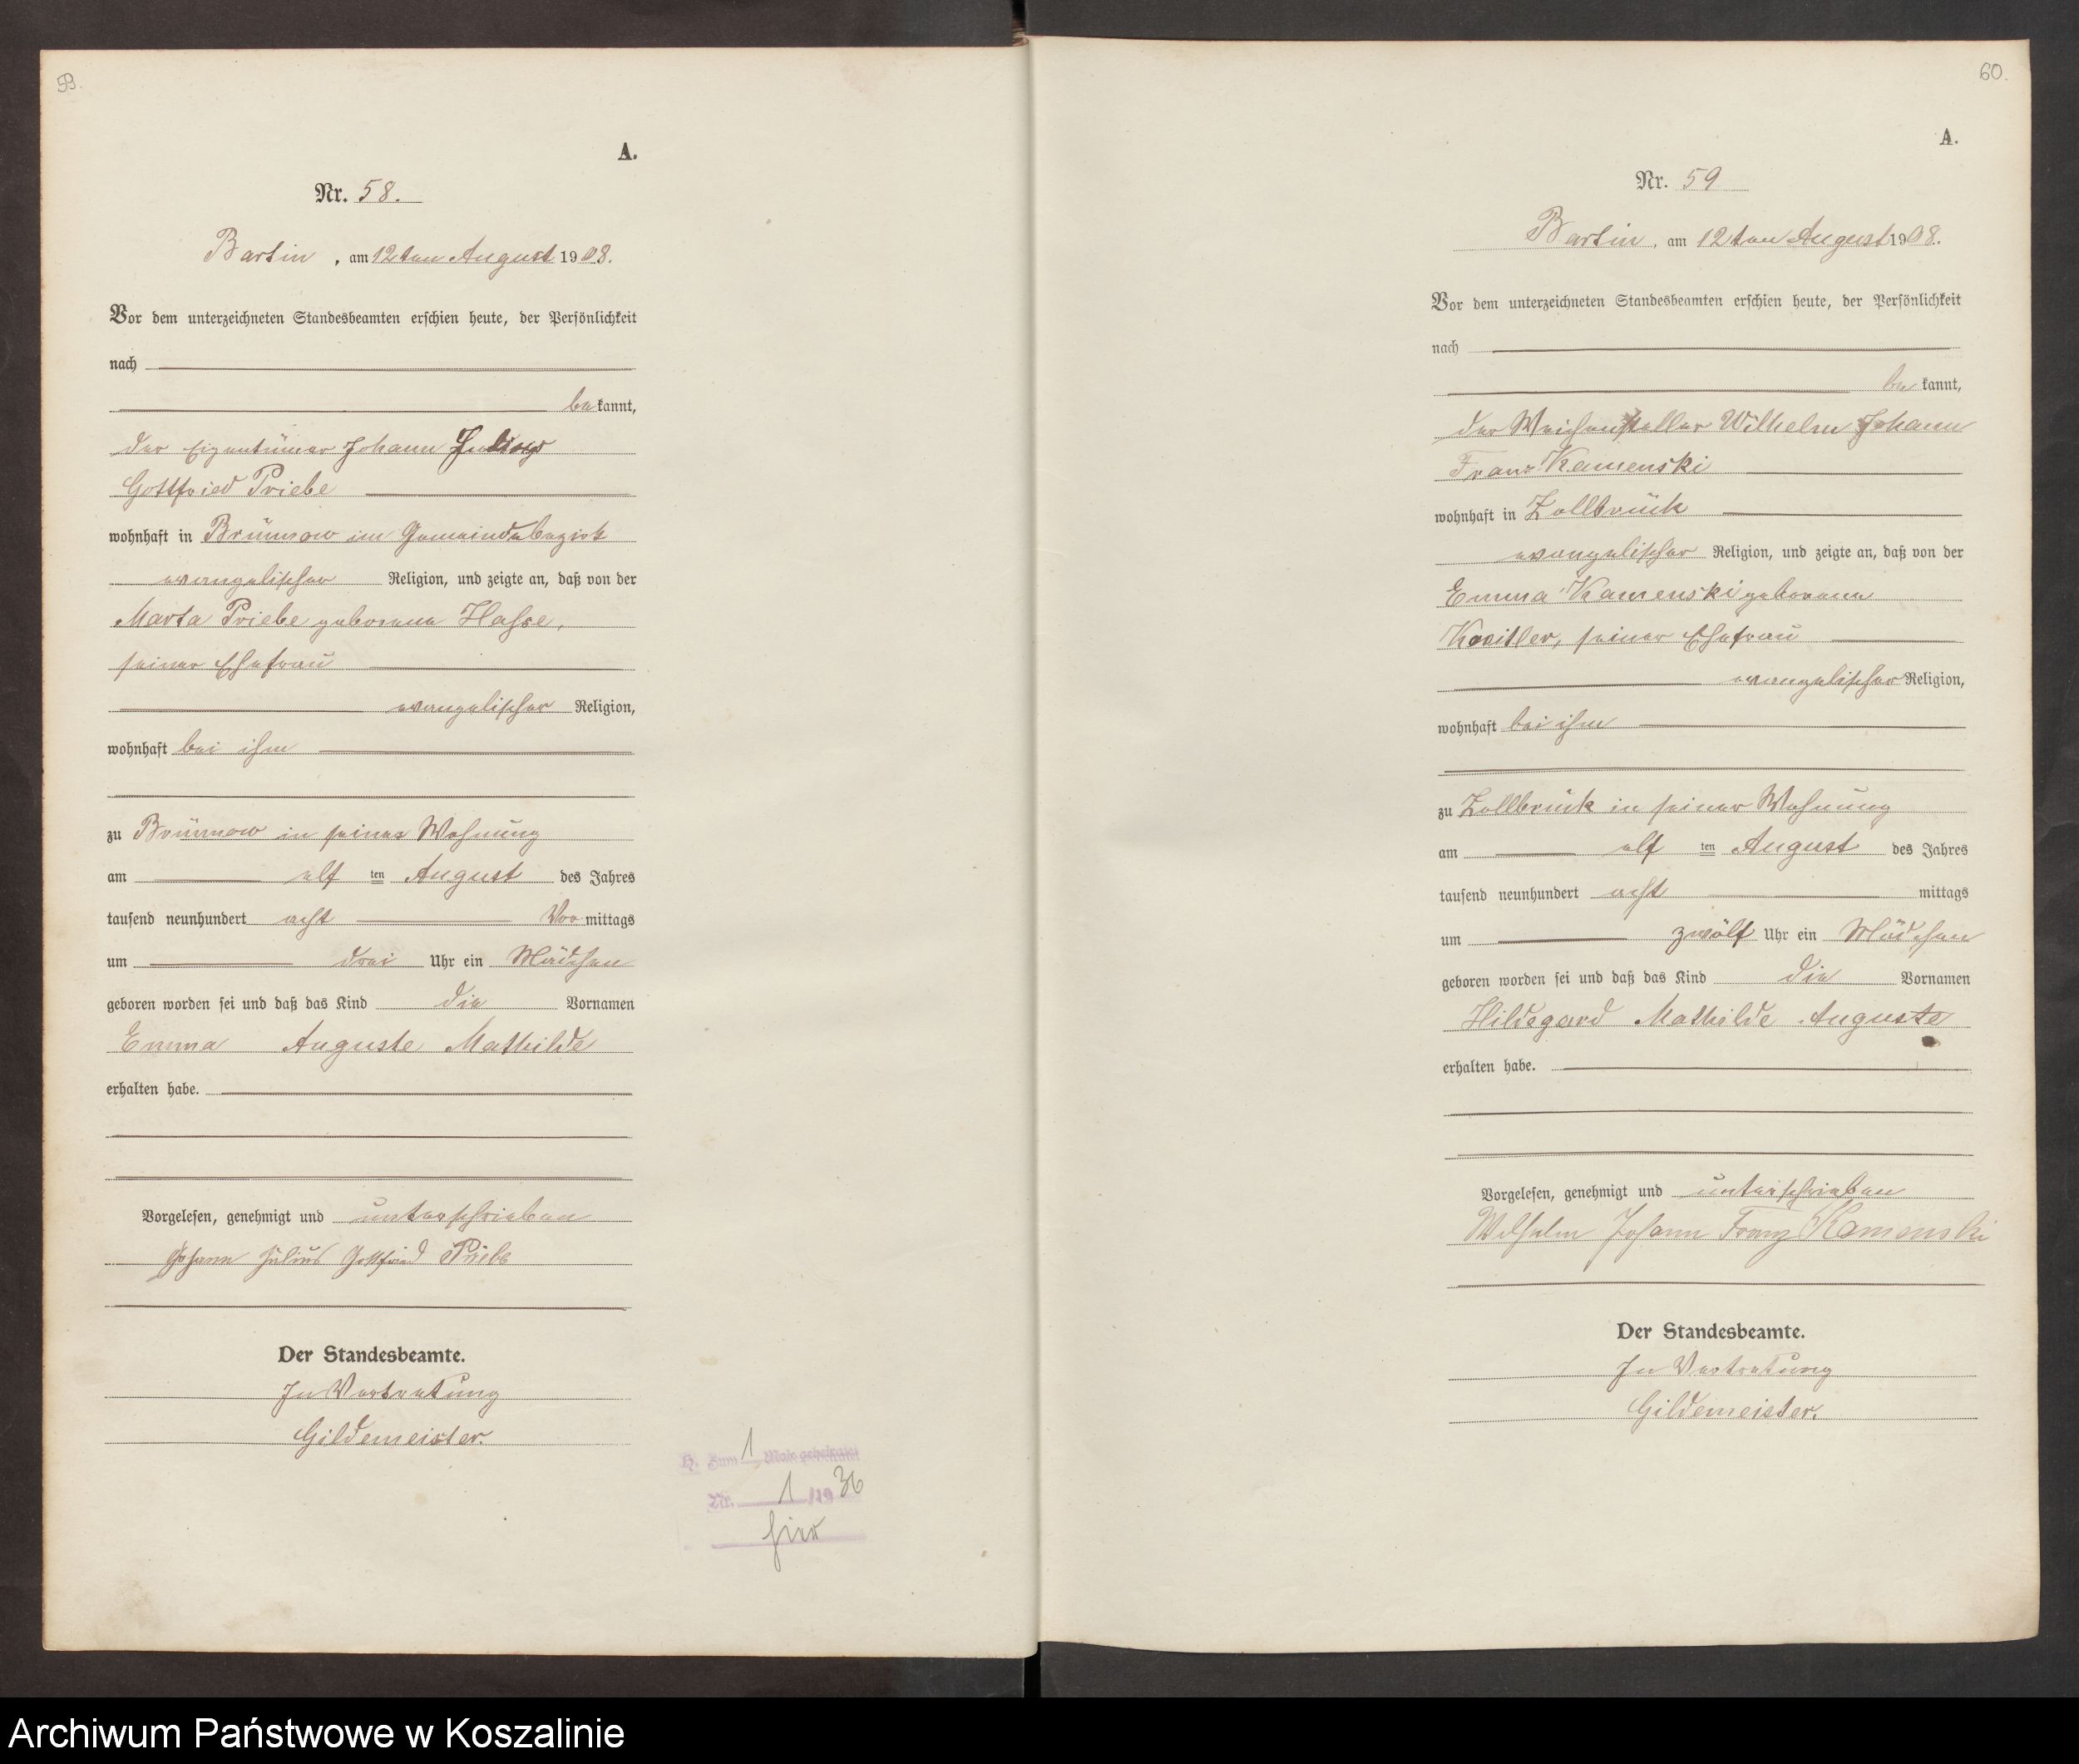 59.
A.
Nr. 58.
Bartin, am 12ten August 1908.
Vor dem unterzeichneten Standesbeamten erschien heute, der Persönlichkeit
nach
bekannt,
der Eigentümer Johann
Gottfried Priebe
wohnhaft in Brünnow im Gemeindebezirk
evangelischer Religion, und zeigte an, daß von der
Marta Priebe geborene Hasse,
seiner Ehefrau
evangelischer Religion,
wohnhaft bei ihm
zu Brünnow in seiner Wohnung
am elf ten August des Jahres
tausend neunhundert acht Vormittags
um drei Uhr ein Mädchen
geboren worden sei und daß das Kind die Vornamen
Emma Auguste Mathilde
erhalten habe.
Vorgelesen, genehmigt und unterschrieben
Johann Julius Gottfried Priebe
Der Standesbeamte.
In Vertretung
Gildemeister.
H. Zum 1 Male geheiratet
Nr. 1/1936
hier
60.
A.
Nr. 59
Bartin, am 12ten August 1908.
Vor dem unterzeichneten Standesbeamten erschien heute, der Persönlichkeit
nach
bekannt,
der Weichensteller Wilhelm Johann
Franz Kamenski
wohnhaft in Zollbrück
evangelischer Religion, und zeigte an, daß von der
Emma Kamenski geborene
seiner Ehefrau
evangelischer Religion,
wohnhaft bei ihm
zu Zollbrück in seiner Wohnung
am elf ten August des Jahres
tausend neunhundert acht mittags
um zwölf Uhr ein Mädchen
geboren worden sei und daß das Kind die Vornamen
Hildegard Mathilde Auguste
erhalten habe.
Vorgelesen, genehmigt und unterschrieben
Wilhelm Johann Franz Kamenski
Der Standesbeamte.
In Vertretung
Gildemeister.
Archiwum Państwowe w Koszalinie